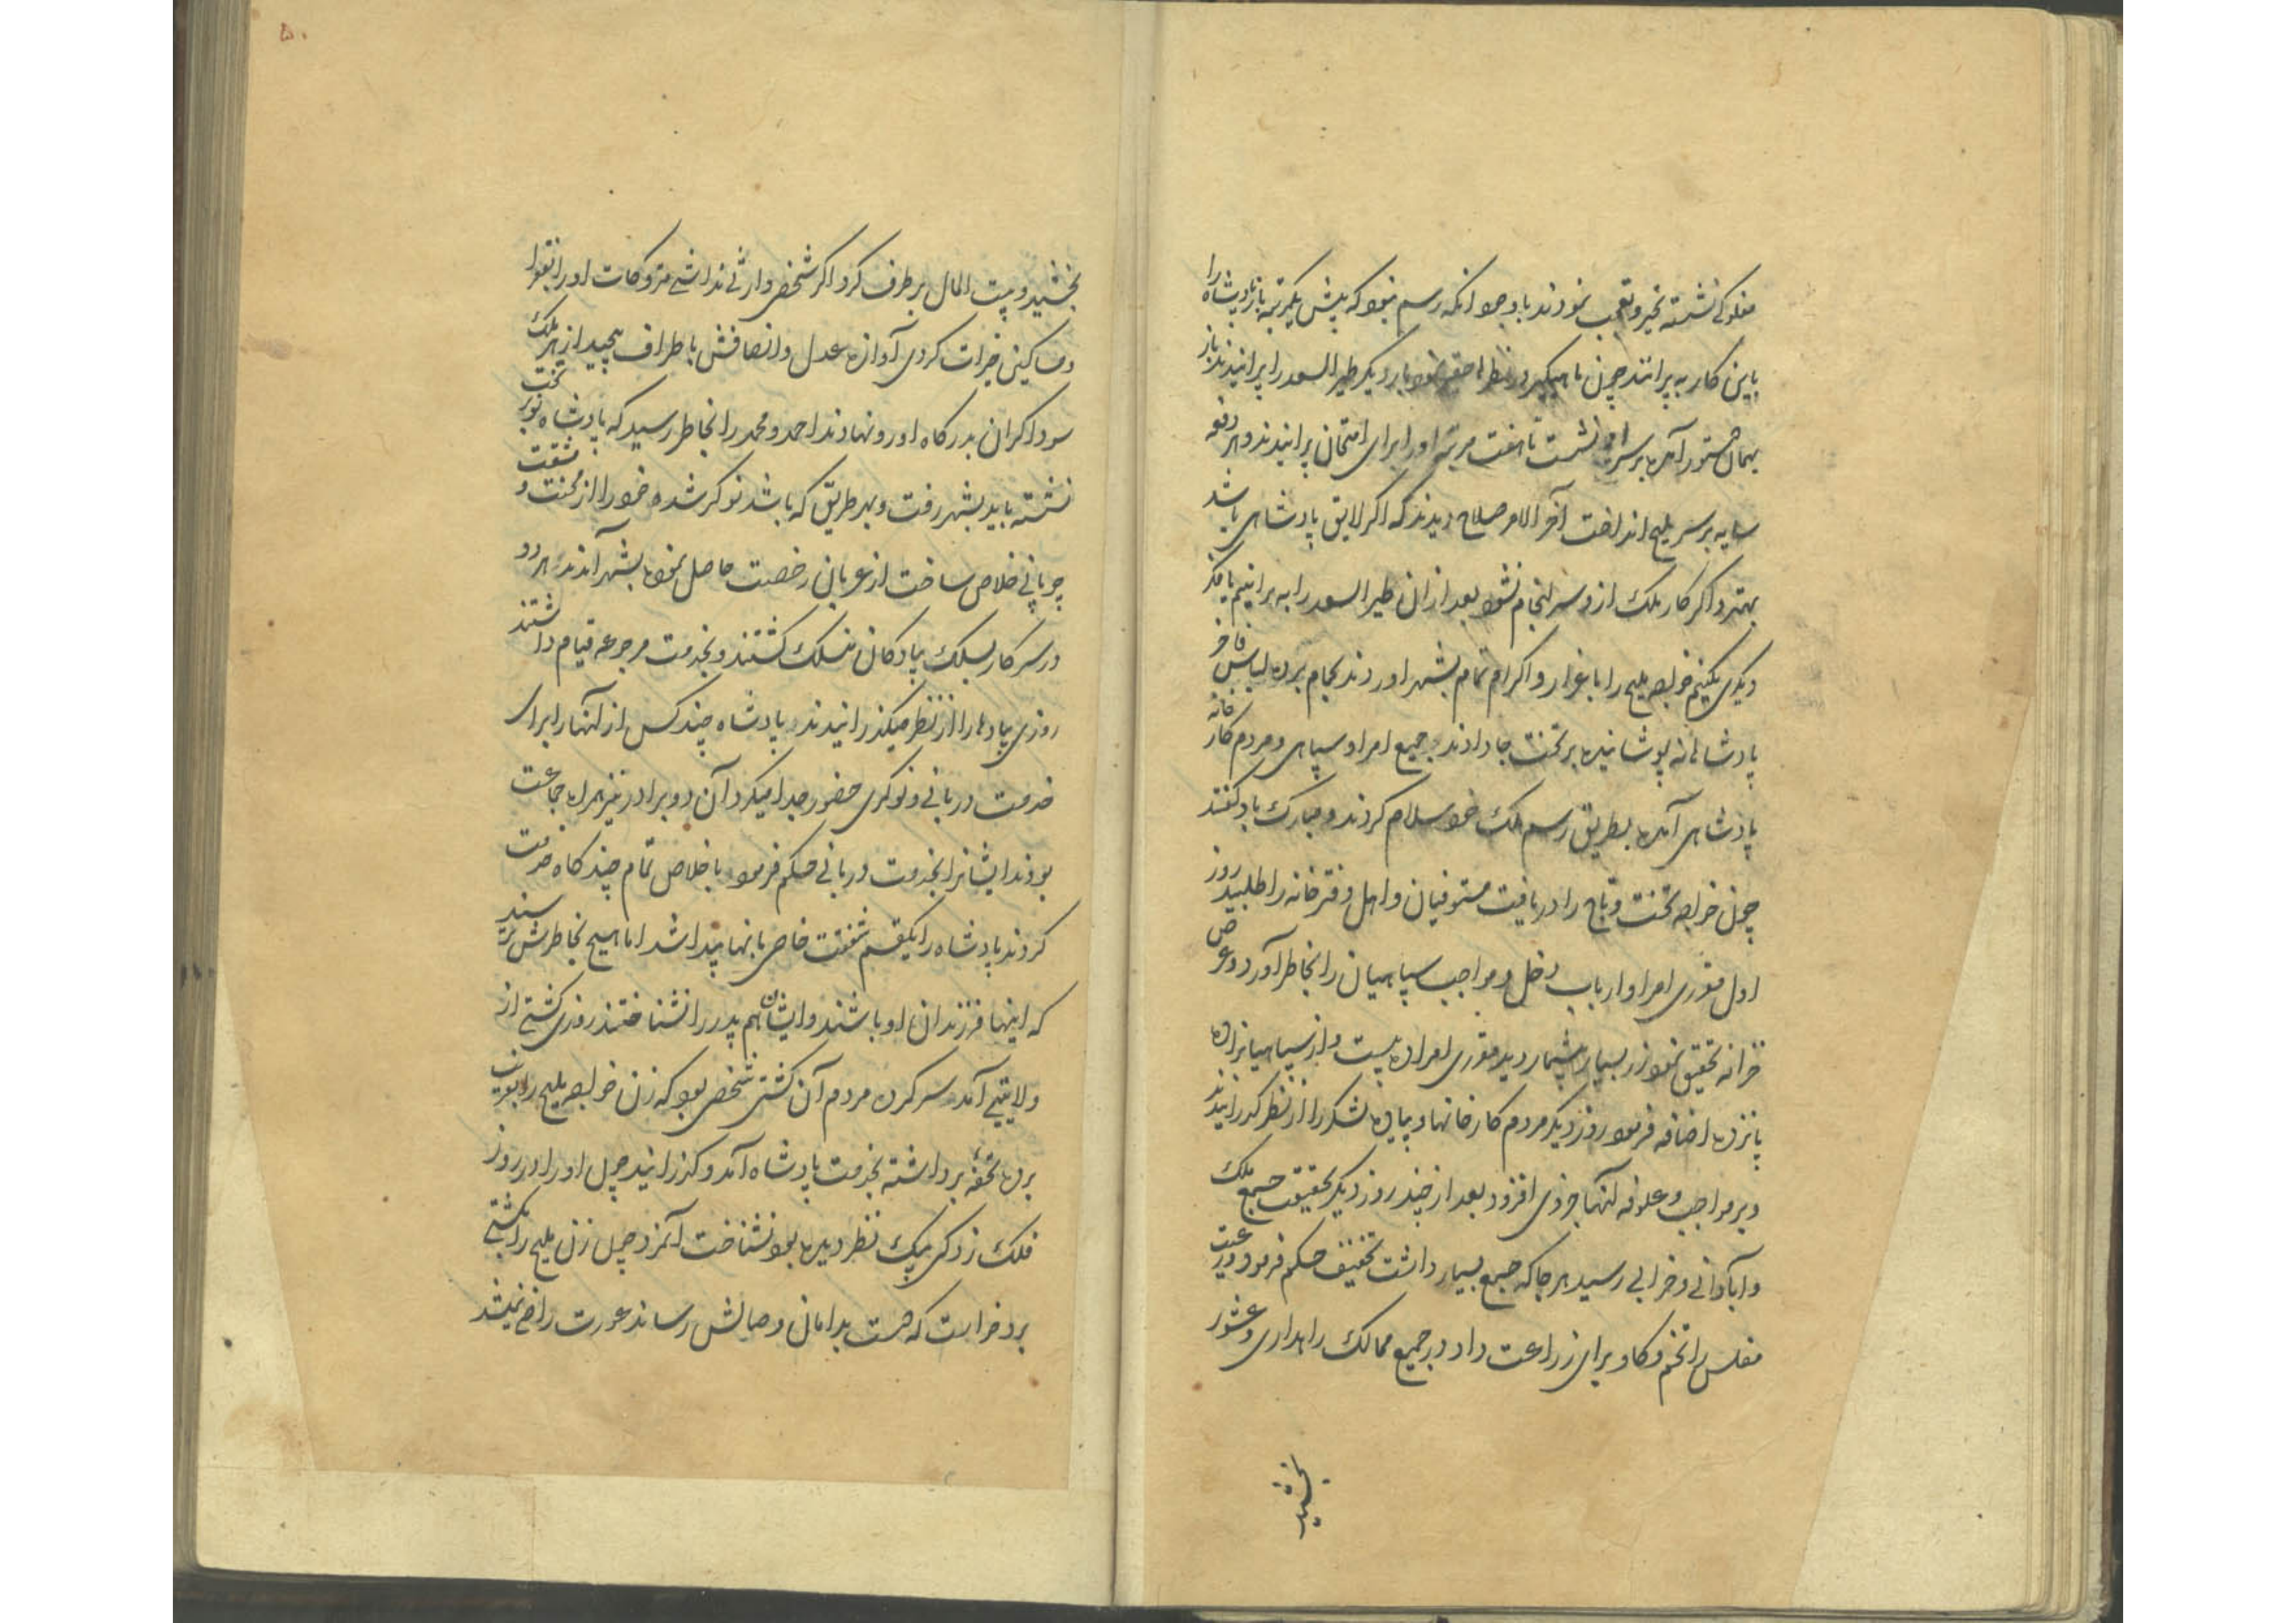 مفلوکی نشسته تحیر و تعجب نمودند با وجود انکه رسم نبود که بیش یکمرتبه باز پادشاه را
باین کار به پرانند چون ماهیگیر در نظرها حقیر نمود بار دیکر طیر السعد را پرانیدند باز
بهمان دستور آمده بر سر او نشست تا هفت مرتبه او را برای امتحان پرانیدند و هر دفعه
سایه بر سر ملیح انداخت آخر الامر صلاح دیدند که اکر لایق پادشاهی باشد
بهتر و اکر کار ملک ازو سرانجام نشود بعد ازان طیر السعد را به پرانیم یا فکر
دیکری بکنیم خواجه ملیح را باعزاز و اکرام تمام بشهر اوردند بحمام برده لباس فاخر
پادشاهانه پوشانیده بر تخت جا دادند و جمیع امرا و سپاهی و مردم کارخانه
پادشاهی آمده بطریق رسم ملک خود سلام کردند و مبارک باد کفتند
چون خواجه تخت و تاج را دریافت مستوفیان و اهل دفترخانه را طلبید روز
اول مقرری امرا و ارباب دخل و مواجب سپاهیان را بخاطر آورد و عرض
خزانه تحقیق نمود زر بسیار بیشمار دید مقرری امرا ده بیست و از سپاهیانرا ده
پانزده اضافه فرمود روز دیکر مردم کارخانها و پیاده لشکر را از نظر کذرانیدند
و بر مواجب و علوفه آنها جزوی افزود بعد از چند روز دیکر بحقیقت جمع ملک
و آبادانی و خرابی رسید هر جا که جمع بسیار داشت تخفیف حکم فرمود و رعیت
مفلس را تخم و کاو برای زراعت داد و در جمیع ممالک راهداری و عشور
بخشید
۵۰
بخشید و بیت المال بر طرف کرد اکر شخصی وارثی نداشتی متروکات او را بفقرا
و مساکین خیرات کردی آوازه عدل و انصافش باطراف پیچید از هر ملک
سوداکران بدرکاه او رو نهادند احمد و محمد را بخاطر رسید که پادشاه نو بر تخت
نشسته باید بشهر رفت و بهر طریق که باشد نوکر شده خود را از محنت و مشقت
چوپانی خلاص ساخت از عربان رخصت حاصل نموده بشهر آمدند هر دو
در سرکار بسلک پیادکان منسلک کشتند و بخدمت مرجوعه قیام داشتند
روزی پیادها را از نظر میکذرانیدند پادشاه چند کس از آنها را برای
خدمت دربانی و نوکری حضور جدا میکرد آن دو برادر نیز همراه جماعت
بودند ایشانرا بخدمت دربانی حکم فرمود باخلاص تمام چند کاه خدمت
کردند پادشاه را یکقسم شفقت خاصی بانها پیدا شد اما هیچ بخاطرش نرسید
که اینها فرزندان او باشند و ایشان هم پدر را نشناختند روزی کشتی از
ولایتی آمد سر کرده مردم آن کشتی شخصی بود که زن خواجه ملیح را بفریب
برده تحفه برداشته بخدمت پادشاه آمد و کذرانید چون او را در روز
فلک زدکی بیک نظر دیده بود نشناخت آنمرد چون زن ملیح را بکشتی
برد خواست که دست بدامان وصالش رساند عورت راضی نمیشد